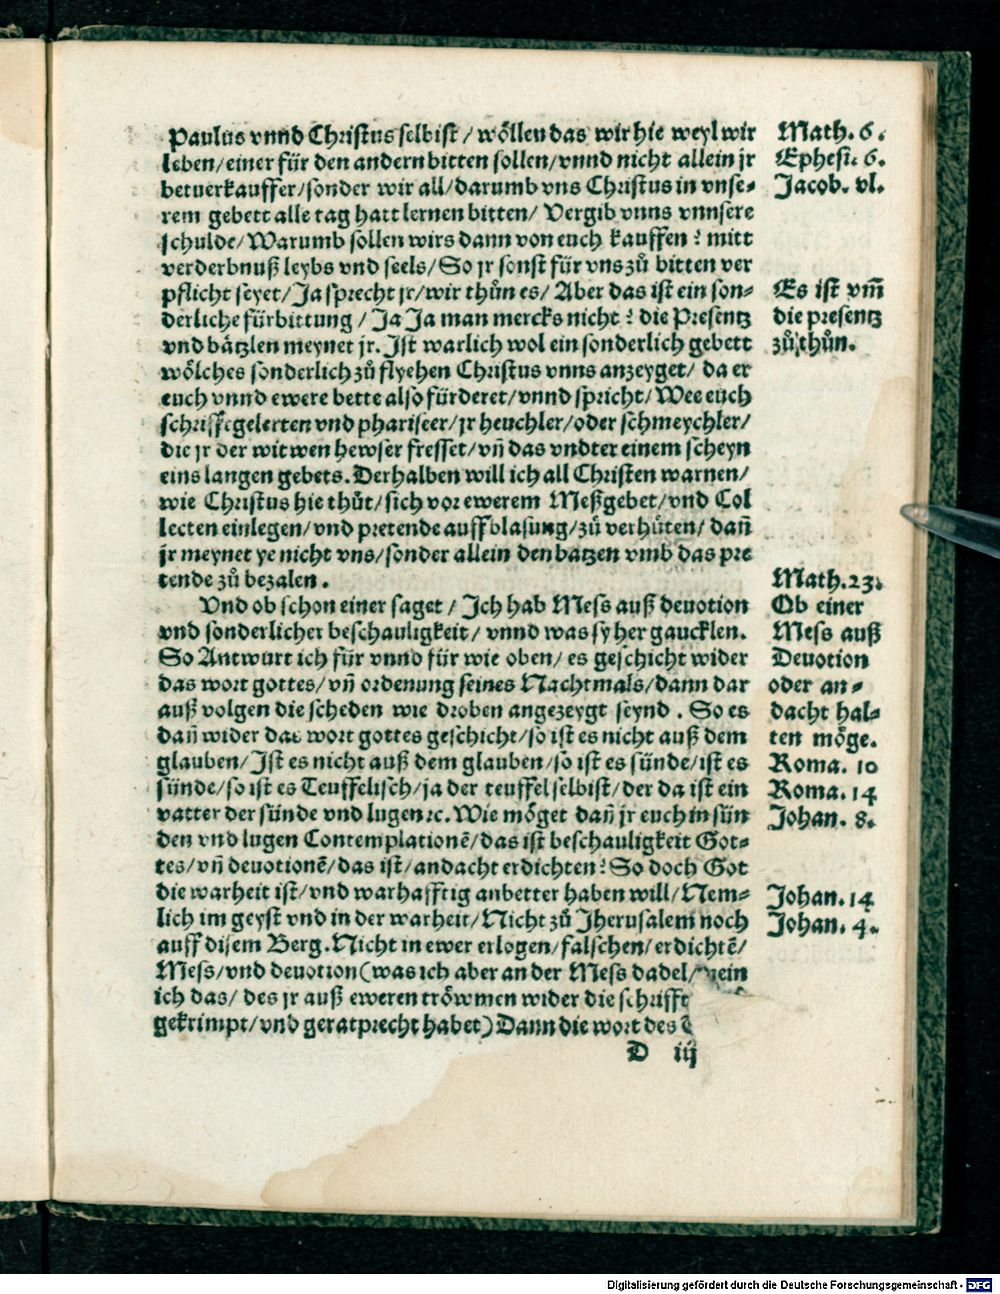 Paulus vnnd Christus selbist / wöllen das wir hie weyl wir
leben / einer für den andern bitten sollen / vnnd nicht allein jr
betuerkauffer / sonder wir all / darumb vns Christus in vnse⸗
rem gebett alle tag hatt lernen bitten / Vergib vnns vnnsere
schulde / Warumb sollen wirs dann von euch kauffen ? mitt
verderbnuß leybs vnd seels / So jr sonst für vns zů bitten ver
pflicht seyet / Ja sprecht jr / wir thůn es / Aber das ist ein son⸗
derliche fürbittung / Ja Ja man mercks nicht ? die Presentz
vnd bätzlen meynet jr. Ist warlich wol ein sonderlich gebett
wölches sonderlich zů flyehen Christus vnns anzeyget / da er
euch vnnd ewere bette also fürderet / vnnd spricht / Wee euch
schrifftgelerten vnd phariseer / jr heuchler / oder schmeychler /
die jr der witwen hewser fresset / vñ das vndter einem scheyn
eins langen gebets. Derhalben will ich all Christen warnen /
wie Christus hie thůt / sich vor ewerem Meßgebet / vnd Col
lecten einlegen / vnd pretende auffblasung / zů verhüten / dañ
jr meynet ye nicht vns / sonder allein den batzen vmb das pre
tende zů bezalen .
Vnd ob schon einer saget / Ich hab Mess auß deuotion
vnd sonderlicher beschauligkeit / vnnd was sy her gaucklen.
So Antwurt ich für vnnd für wie oben / es geschicht wider
das wort gottes / vñ ordenung seines Nachtmals / dann dar
auß volgen die scheden wie droben angezeygt seynd . So es
dañ wider das wort gottes geschicht / so ist es nicht auß dem
glauben / Ist es nicht auß dem glauben / so ist es sünde / ist es
sünde / so ist es Teuffelisch / ja der teuffel selbist / der da ist ein
vatter der sünde vnd lugen ꝛc. Wie möget dañ jr euch in sün
den vnd lugen Contemplationē / das ist beschauligkeit Got⸗
tes / vñ deuotionē / das ist / andacht erdichten ? So doch Got
die warheit ist / vnd warhafftig anbetter haben will / Nem⸗
lich im geyst vnd in der warheit / Nicht zů Jherusalem noch
auff disem Berg. Nicht in ewer erlogen / falschen / erdichtē /
Mess / vnd deuotion (was ich aber an der Mess dadel / mein
ich das / des jr auß eweren tröwmen wider die schrifft
gekrimpt / vnd geratprecht habet) Dann die wort des
D iij
Math. 6.
Ephesi. 6.
Jacob. vl.
Es ist vm̃
die presentz
zů thůn.
Math. 23.
Ob einer
Mess auß
Deuotion
oder an⸗
dacht hal⸗
ten möge.
Roma. 10
Roma. 14
Johan. 8.
Johan. 14
Johan. 4.
Digitalisierung gefördert durch die Deutsche Forschungsgemeinschaft - DFG